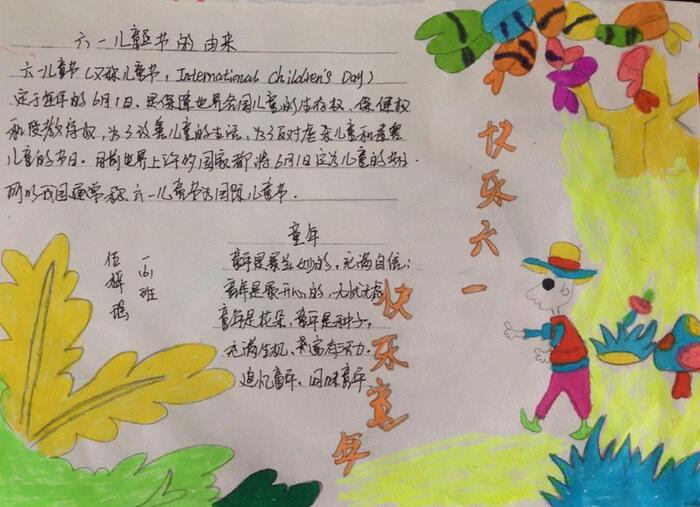 六一儿童节的由来
六一儿童节(又称儿童节,International Children's Day)
定于每年的6月1日,是保障世界各国儿童的生存权、保健权
和受教育权,为了改善儿童的生活,为了反对虐杀儿童和毒害
儿童的节日。目前世界上许多的国家都将6月1日定为儿童的节日.
所以我国通常称六一儿童节为国际儿童节.
童年
童年是最美妙的,充满自信;
童年是最开心的,无忧无虑
童年是花朵,童年是种子,
充满生机、最富有活力.
追忆童年,回味童年
一(3)班
伍
快乐六一
快乐童年